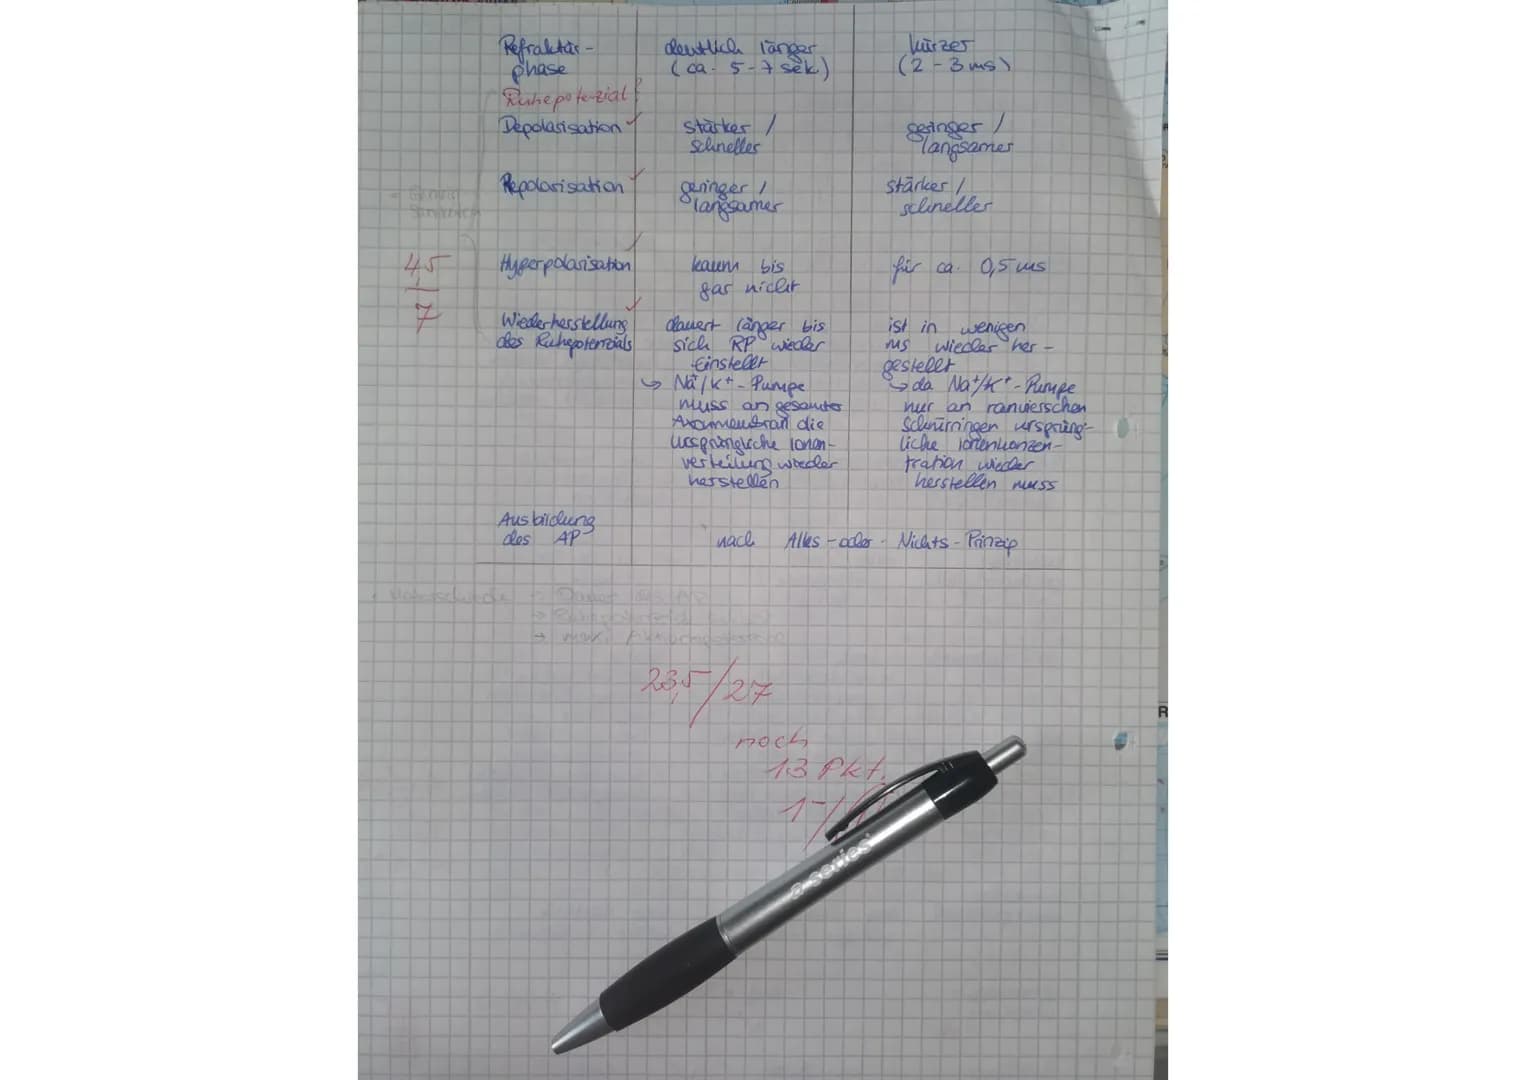 Refraktär-
phase
deutlich länger
(ca. 5-7 sek.)
kürzer
(2-3 ms)
Ruhepotenzial?
Depolarisation
stärker /
schneller
geringer /
langsamer
Repolarisation
geringer /
langsamer
stärker /
schneller
4,5
7
Hyperpolarisation
kaum bis
gar nicht
für ca. 0,5 ms
Wiederherstellung
des Ruhepotenzials
dauert länger bis
sich RP wieder
einstellt
↳ Na⁺/K⁺-Pumpe
muss an gesamter
Axonmembran die
ursprüngliche Ionen-
verteilung wieder
herstellen
ist in wenigen
ms wieder her-
gestellt
↳ da Na⁺/K⁺-Pumpe
nur an ranvierschen
Schnürringen ursprüng-
liche Ionenkonzen-
tration wieder
herstellen muss
Ausbildung
des AP
nach Alles-oder-Nichts-Prinzip
→ Dauer des AP
→ max. Aktionspotenzial
23,5/27
noch
13 Pkt.
1-/
a-series
R